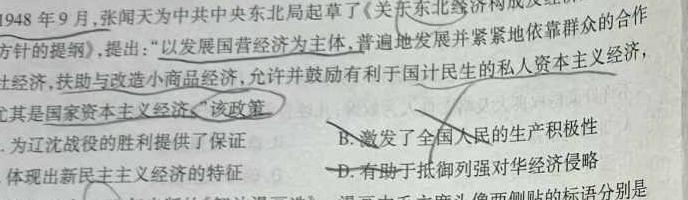 1948年9月,张闻天为中共中央东北局起草了《关于东北经济构成及经
方针的提纲》,提出:“以发展国营经济为主体,普遍地发展并紧紧地依靠群众的合作
社经济,扶助与改造小商品经济,允许并鼓励有利于国计民生的私人资本主义经济,
尤其是国家资本主义经济。”该政策
.为辽沈战役的胜利提供了保证 B.激发了全国人民的生产积极性
.体现出新民主主义经济的特征 D.有助于抵御列强对华经济侵略
漫画中毛主席头像两侧贴的标语分别是